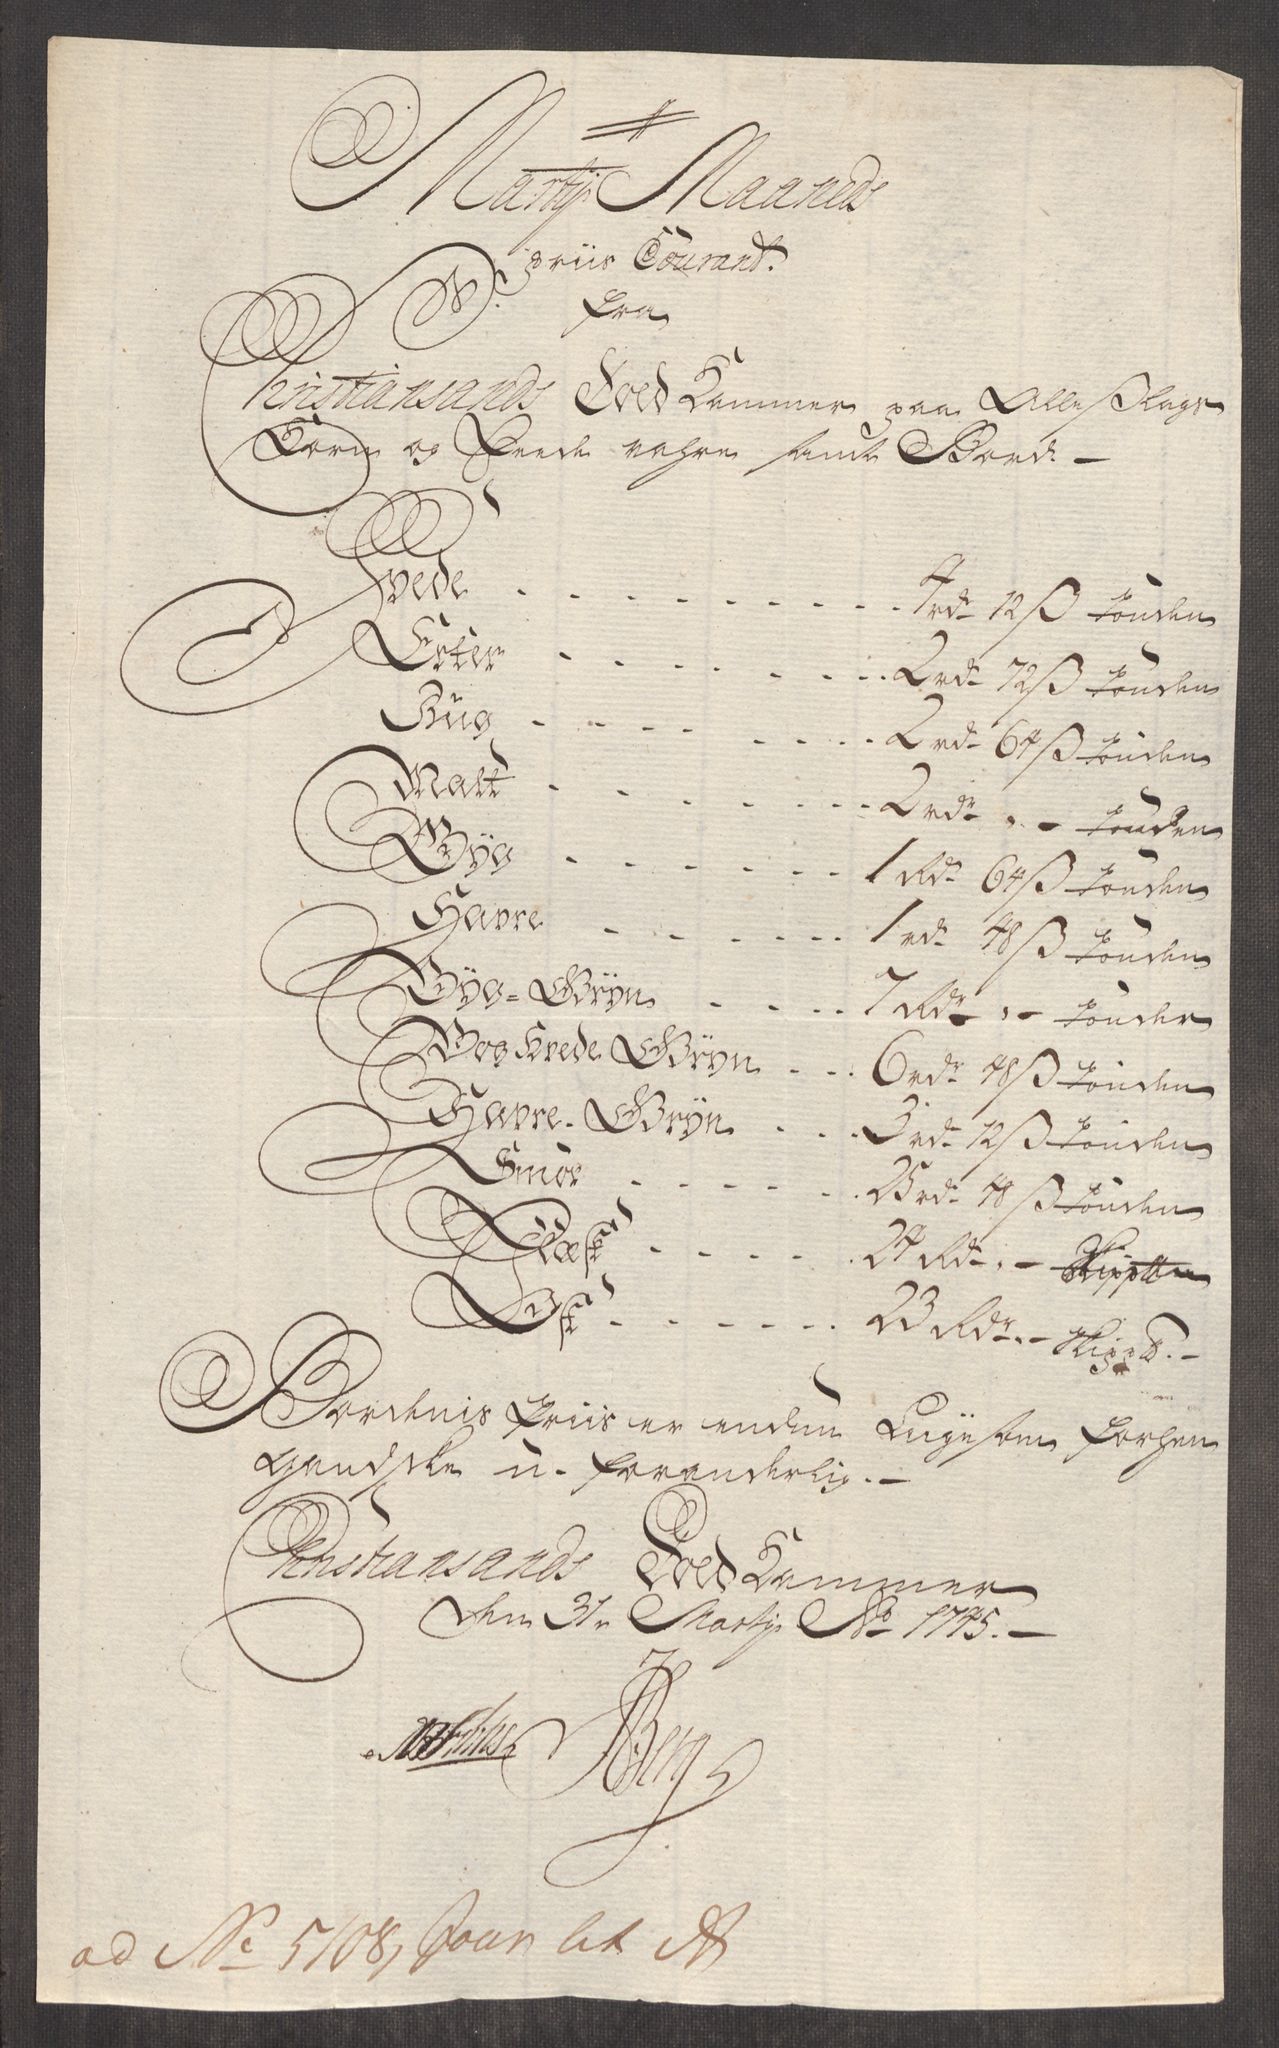 Martij Maaneds
Priis Courant.
fra
Christiansands Told Kammer paa Alle Slags
Korn og Feede vahre samt Bord. -
Hvede - - - - - - - - - 4 rdr 12 ß tønden
Erter - - - - - - - 2 rdr 72 ß tønden
Rug - - - - - - - 2 rdr 64 ß tønden
Malt - - - - - - - 2 rdr " - tønden
Byg - - - - - - 1 Rdr 64 ß tønden
Havre - - - - - - 1 rdr 48 ß tønden
Byg = Gryn - - - - 7 Rdr " - tønden
Boghvede Gryn - - 6 rdr 48 ß tønden
Havre - Gryn - - - 3 rdr 12 ß tønden
Smør - - - - - - 25 rdr 48 ß tønden
Flæsk - - - - - 24 Rdr " -
Fisk - - - - - - 23 Rdr " -
Bordenis Priis er endnu Ligesom forhen
gandske u-foranderlig. -
Christiansands Told Kammer
den 31te Martij Ao 1745. -
Berg
ad No 5108,